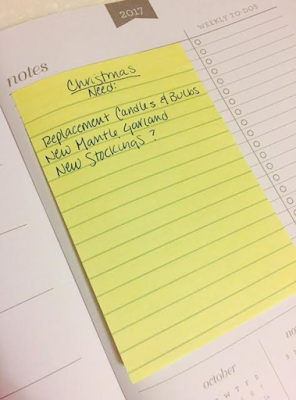 2017
WEEKLY TO DO
notes
Christmas
Need:
Replacement Candles & Bulbs
New Mantle Garland
New Stockings?
october